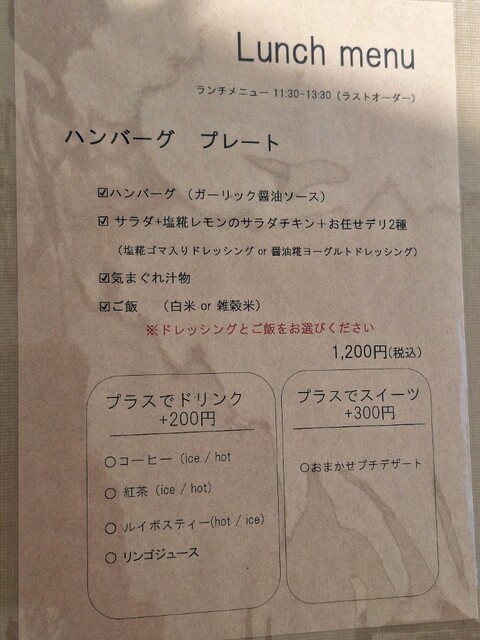 Lunch menu
ランチメニュー 11:30-13:30（ラストオーダー）
ハンバーグ　プレート
☑ハンバーグ （ガーリック醤油ソース）
☑ サラダ+塩糀レモンのサラダチキン＋お任せデリ2種
（塩糀ゴマ入りドレッシング or 醤油糀ヨーグルトドレッシング）
☑気まぐれ汁物
☑ご飯　（白米 or 雑穀米）
※ドレッシングとご飯をお選びください
1,200円(税込)
プラスでドリンク
+200円
○コーヒー（ice / hot
○ 紅茶（ice / hot)
○ ルイボスティー(hot / ice)
○ リンゴジュース
プラスでスイーツ
+300円
○おまかせプチデザート